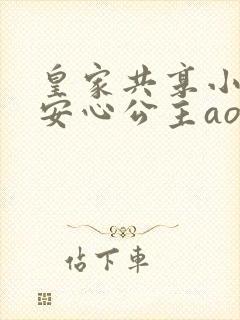 皇家共享小
安心公主ao
佔下車